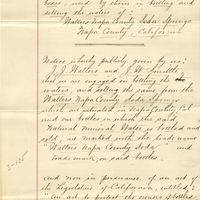 boxes, used by those in bottling and
selling the waters of
Walters Napa County Soda Springs
Napa County, California
Notice is hereby publicly given by us:
J. J. Walters and J. W. Smittle,
that we are engaged in bottling the
waters, and selling the same, from the
Walters Napa County Soda Springs
which are situated in Napa County, Cal.
and our bottles in which the said
Natural mineral Water is bottled and
sold, are marked with the words
"Walters Napa County Soda" and
trade mark, on said bottles.
And now in pursuance, of an act of
the Legislature of California, entitled;
"an act to protect the owners of bottles,